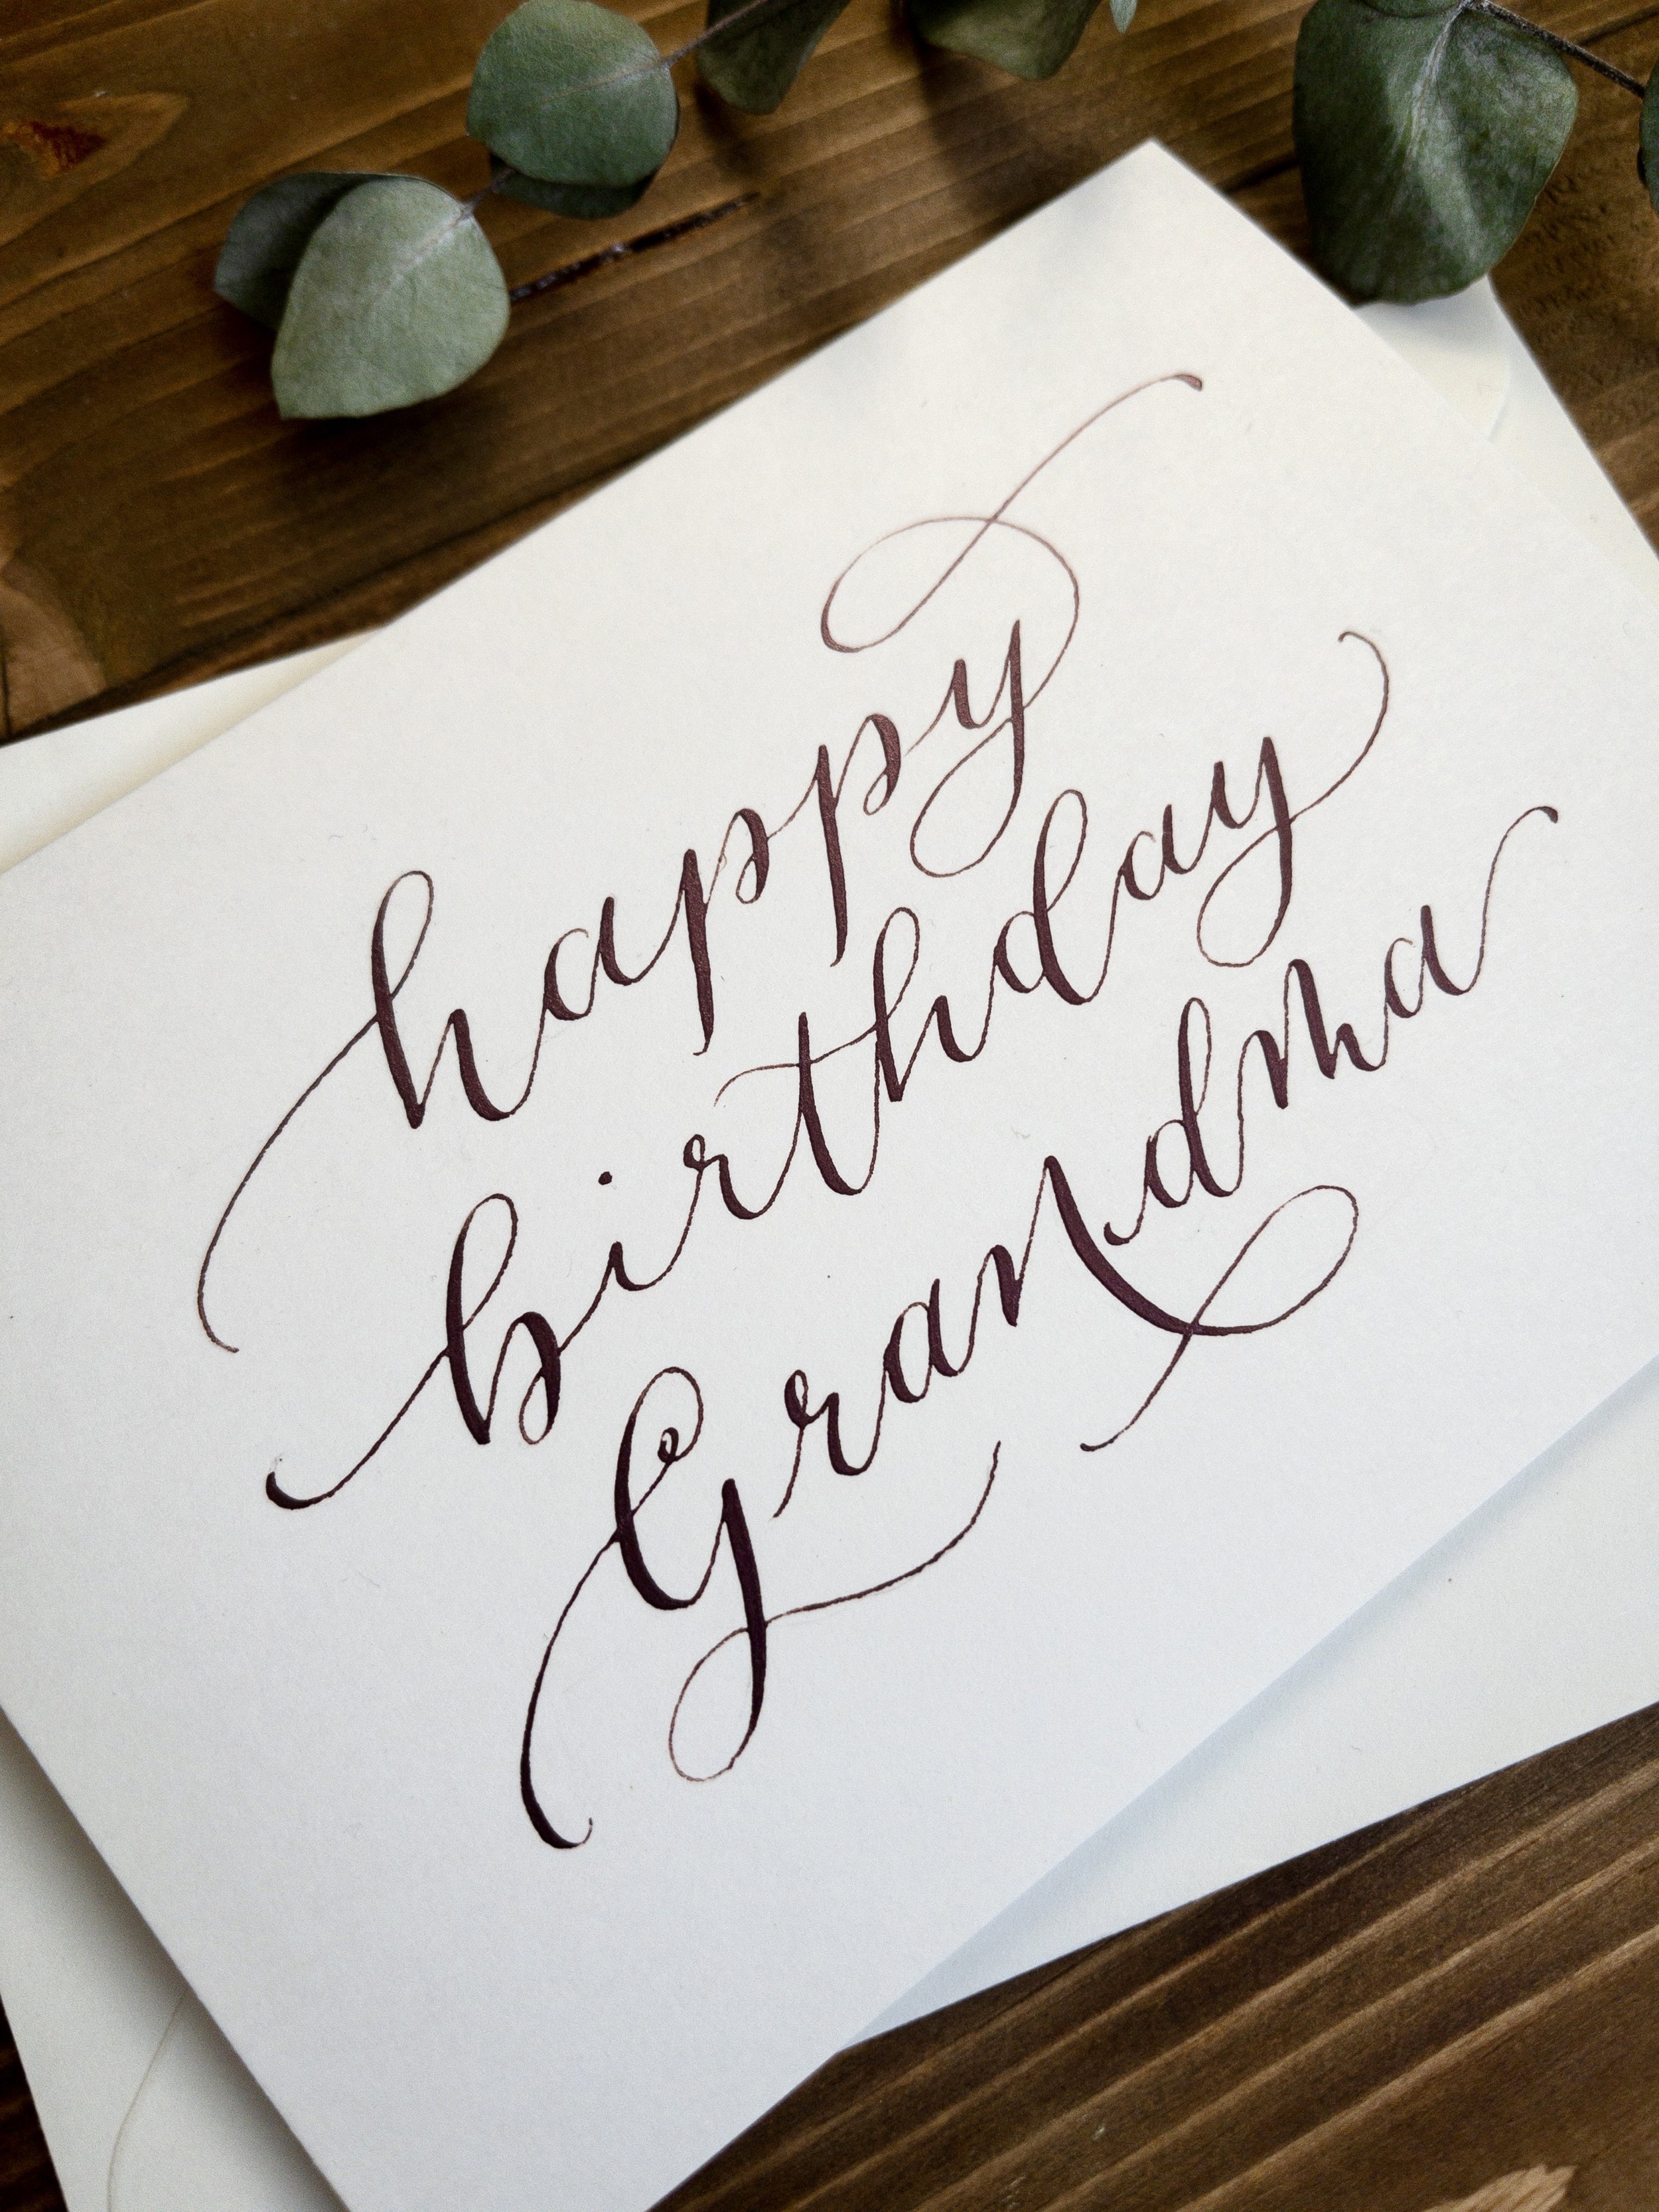 happy
birthday
Grandma